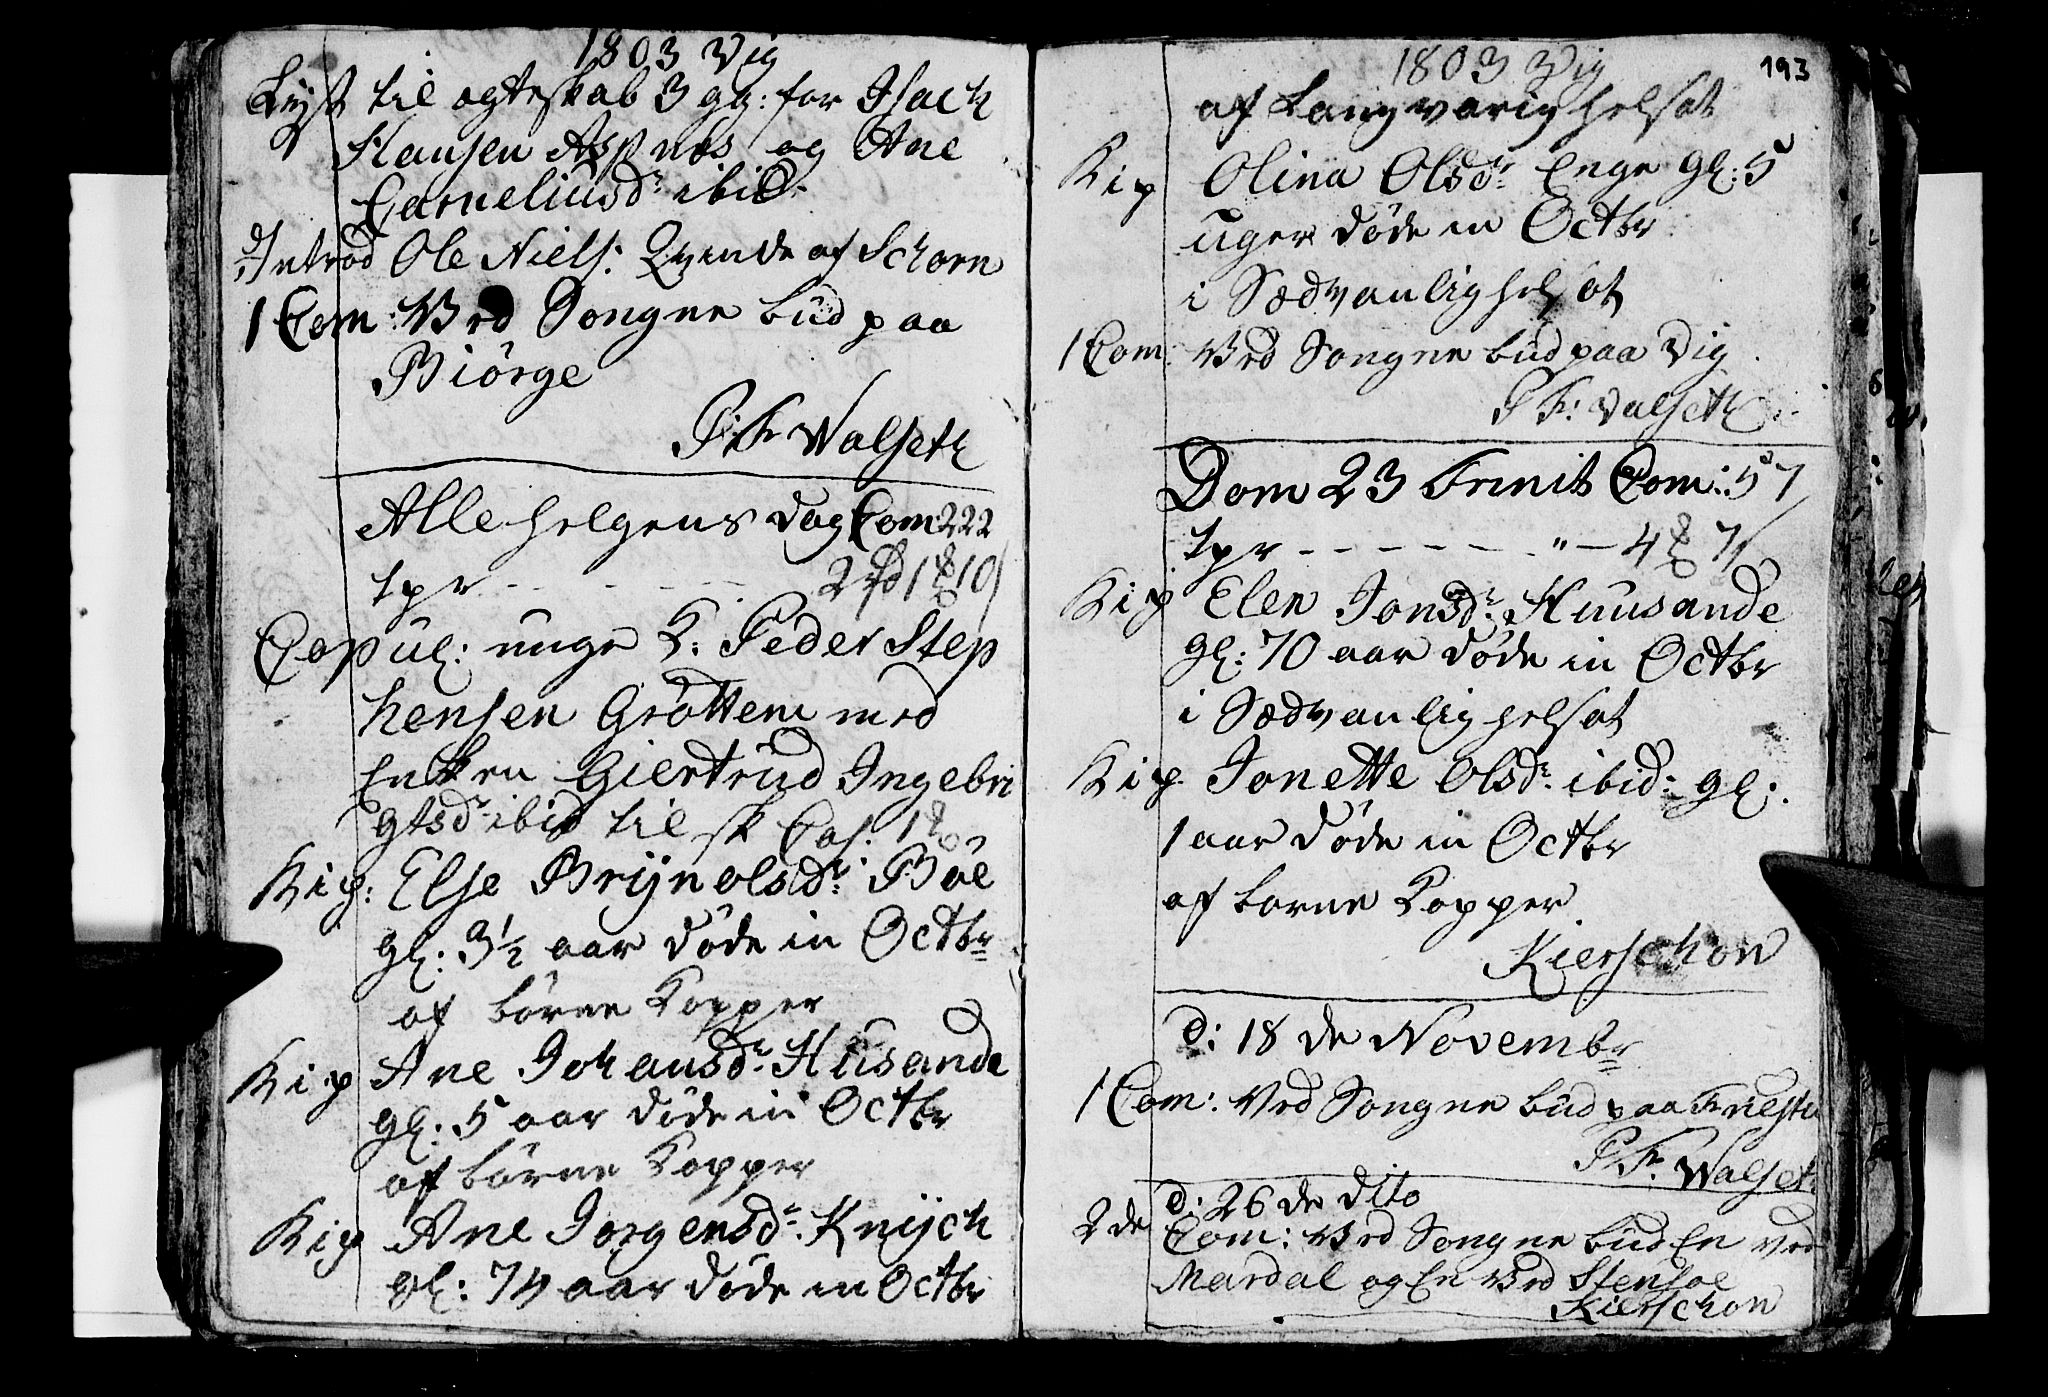 1803 Vig
Lyst til ægteskab 3 gg: for Isach
Hansen Aspnæs og Ane
Corneliusdr ibid.
Introd Ole Niels: Qvinde af Schorn
1 Com: Ved Songne bud paa
Biörge
P: Fr Walseth
Alle helgens dag Com: 222
tpr - - - - 2 rd 1 10
Copul: unge K: Peder Step
hensen Gröttem med
Enken Giertrud Ingebri
gtsdr ibid til sk Cas: 1
Kip: Else Brijnolsdr: Böe
gl: 3½ aar døde in Octbr
af börne Kopper
Kip Ane Johansdr Husande
gl: 5 aar døde in Octbr
af börne Kopper
Kip Ane Jorgensdr: Knijch
gl: 74 aar døde in Octbr
1803 Vig 193
af Langvarig helsot
Kip Olina Olsdr Enge gl: 5
uger døde in Octbr
i Sædvanlig helsot
1 Com: Ved Songne bud paa Vig
P Fr: Valseth
Dom 23 Trinit Com: 57
tpr - - - - - - " - 4 7
Kip Elen Jonsdr: Huusande
gl: 70 aar døde in Octbr
i Sædvanlig helsot
Kip Jonette Olsdr: ibid: gl:
1 aar døde in Octbr
af borne Kopper
Kierschon
d: 18 de Novembr
1 Com: Ved Songne bud paa
P Fr Walset
d: 26 de dito
2 de Com: Ved Songne bud En ved
Mardal og En Ved Stensøe
Kierschon